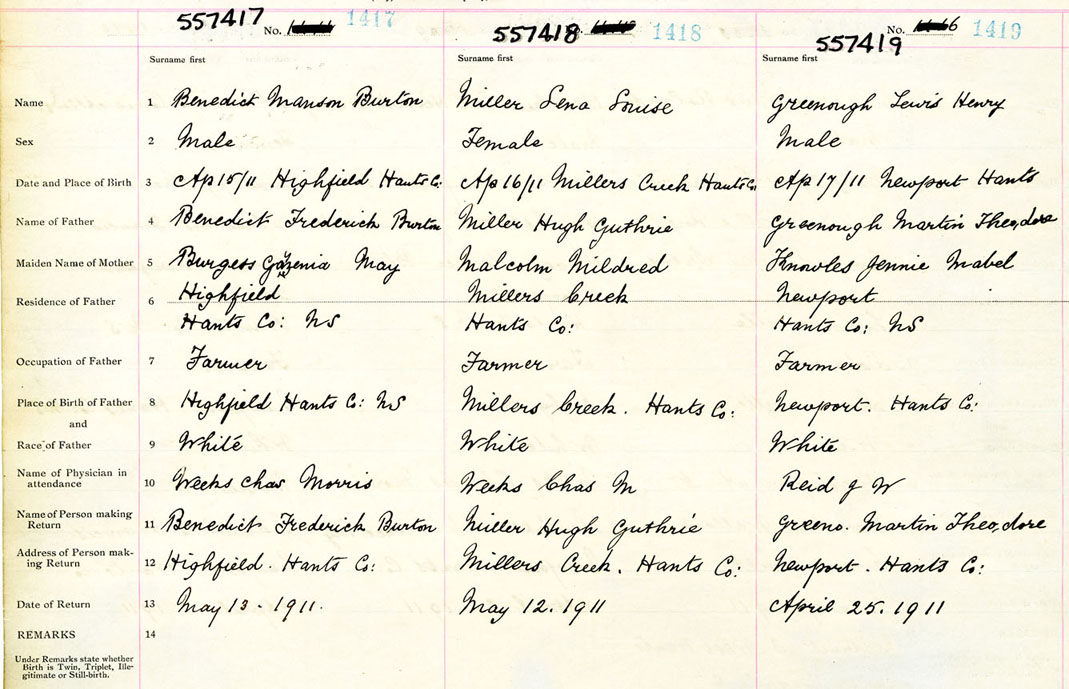 557417 No. 1417 557418 1418 No. 6 1419
557419
Surname first Surname first Surname first
Name 1 Benedict Manson Burton Miller Lena Louise Greenough Lewis Henry
Sex 2 Male Female Male
Date and Place of Birth 3 Ap 15/11 Highfield Hants Co: Ap 16/11 Millers Creek Hants Co. Ap 17/11 Newport Hants
Name of Father 4 Benedict Frederick Burton Miller Hugh Guthrie Greenough Martin Theodore
Maiden Name of Mother 5 Burgess May Malcolm Mildred Knowles Jennie Mabel
Residence of Father 6 Highfield Millers Creek Newport
Hants Co: NS Hants Co: Hants Co: NS
Occupation of Father 7 Farmer Farmer Farmer
Place of Birth of Father 8 Highfield Hants Co: NS Millers Creek. Hants Co: Newport. Hants Co:
and
Race of Father 9 White White White
Name of Physician in
attendance 10 Weeks Chas Morris Weeks Chas M Reid J W
Name of Person making
Return 11 Benedict Frederick Burton Miller Hugh Guthrie Greeno. Martin Theodore
Address of Person mak-
ing Return 12 Highfield. Hants Co: Millers Creek. Hants Co: Newport. Hants Co:
Date of Return 13 May 13. 1911. May 12. 1911 April 25. 1911
REMARKS 14
Under Remarks state whether
Birth is Twin, Triplet, Ille-
gitimate or Still-birth.